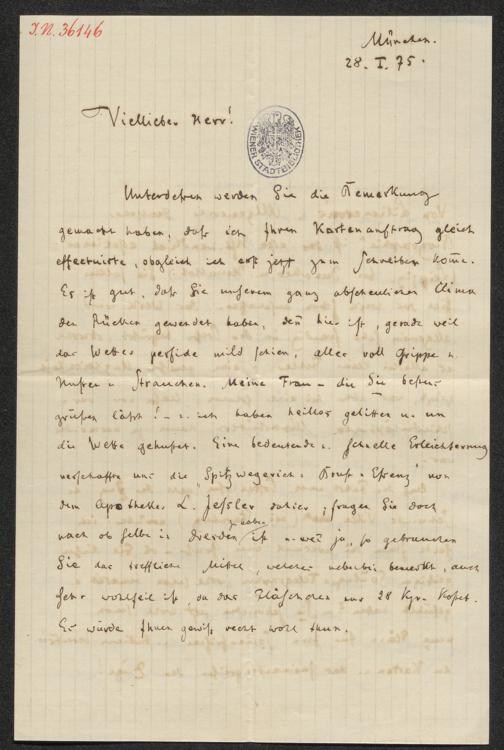 I.N. 36146
München.
28. I. 75.
Viellieber Herr!
WIENER STADTBIBLIOTHEK
Unterdessen werden Sie die Bemerkung
gemacht haben, daß ich Ihren Kartenauftrag gleich
effectuirte, obgleich ich erst jetzt zum Schreiben kom̄e.
Es ist gut, daß Sie unserem ganz abscheulichen Clima
den Rücken gewendet haben, den̄ hier ist, gerade weil
das Wetter perfide mild schien, alles voll Grippe u.
Husten u. Strauchen. Meine Frau – die Sie bestens
grüßen läßt! – u. ich haben heillos gelitten u. um
die Wette gehustet. Eine bedeutende u. schnelle Erleichterung
verschaffte uns die „Spitzwegerich-Brust-Essenz" von
dem Apotheker L. dahier, fragen Sie doch
nach ob selbe in Dresden zu haben ist u. wen̄ ja, so gebrauchen
Sie das treffliche Mittel, welches nebenbei bemerkt, auch
sehr wohlfeil ist, da das Fläschchen nur 28 Kr. kostet.
Es würde Ihnen gewiß recht wohl thun.